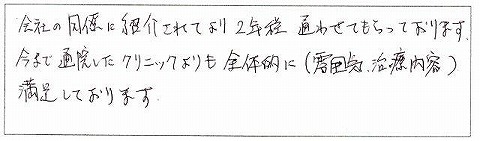 会社の同僚に紹介されてより2年程 通わせてもらっております。
今まで通院したクリニックよりも全体的に(雰囲気、治療内容)
満足しております。